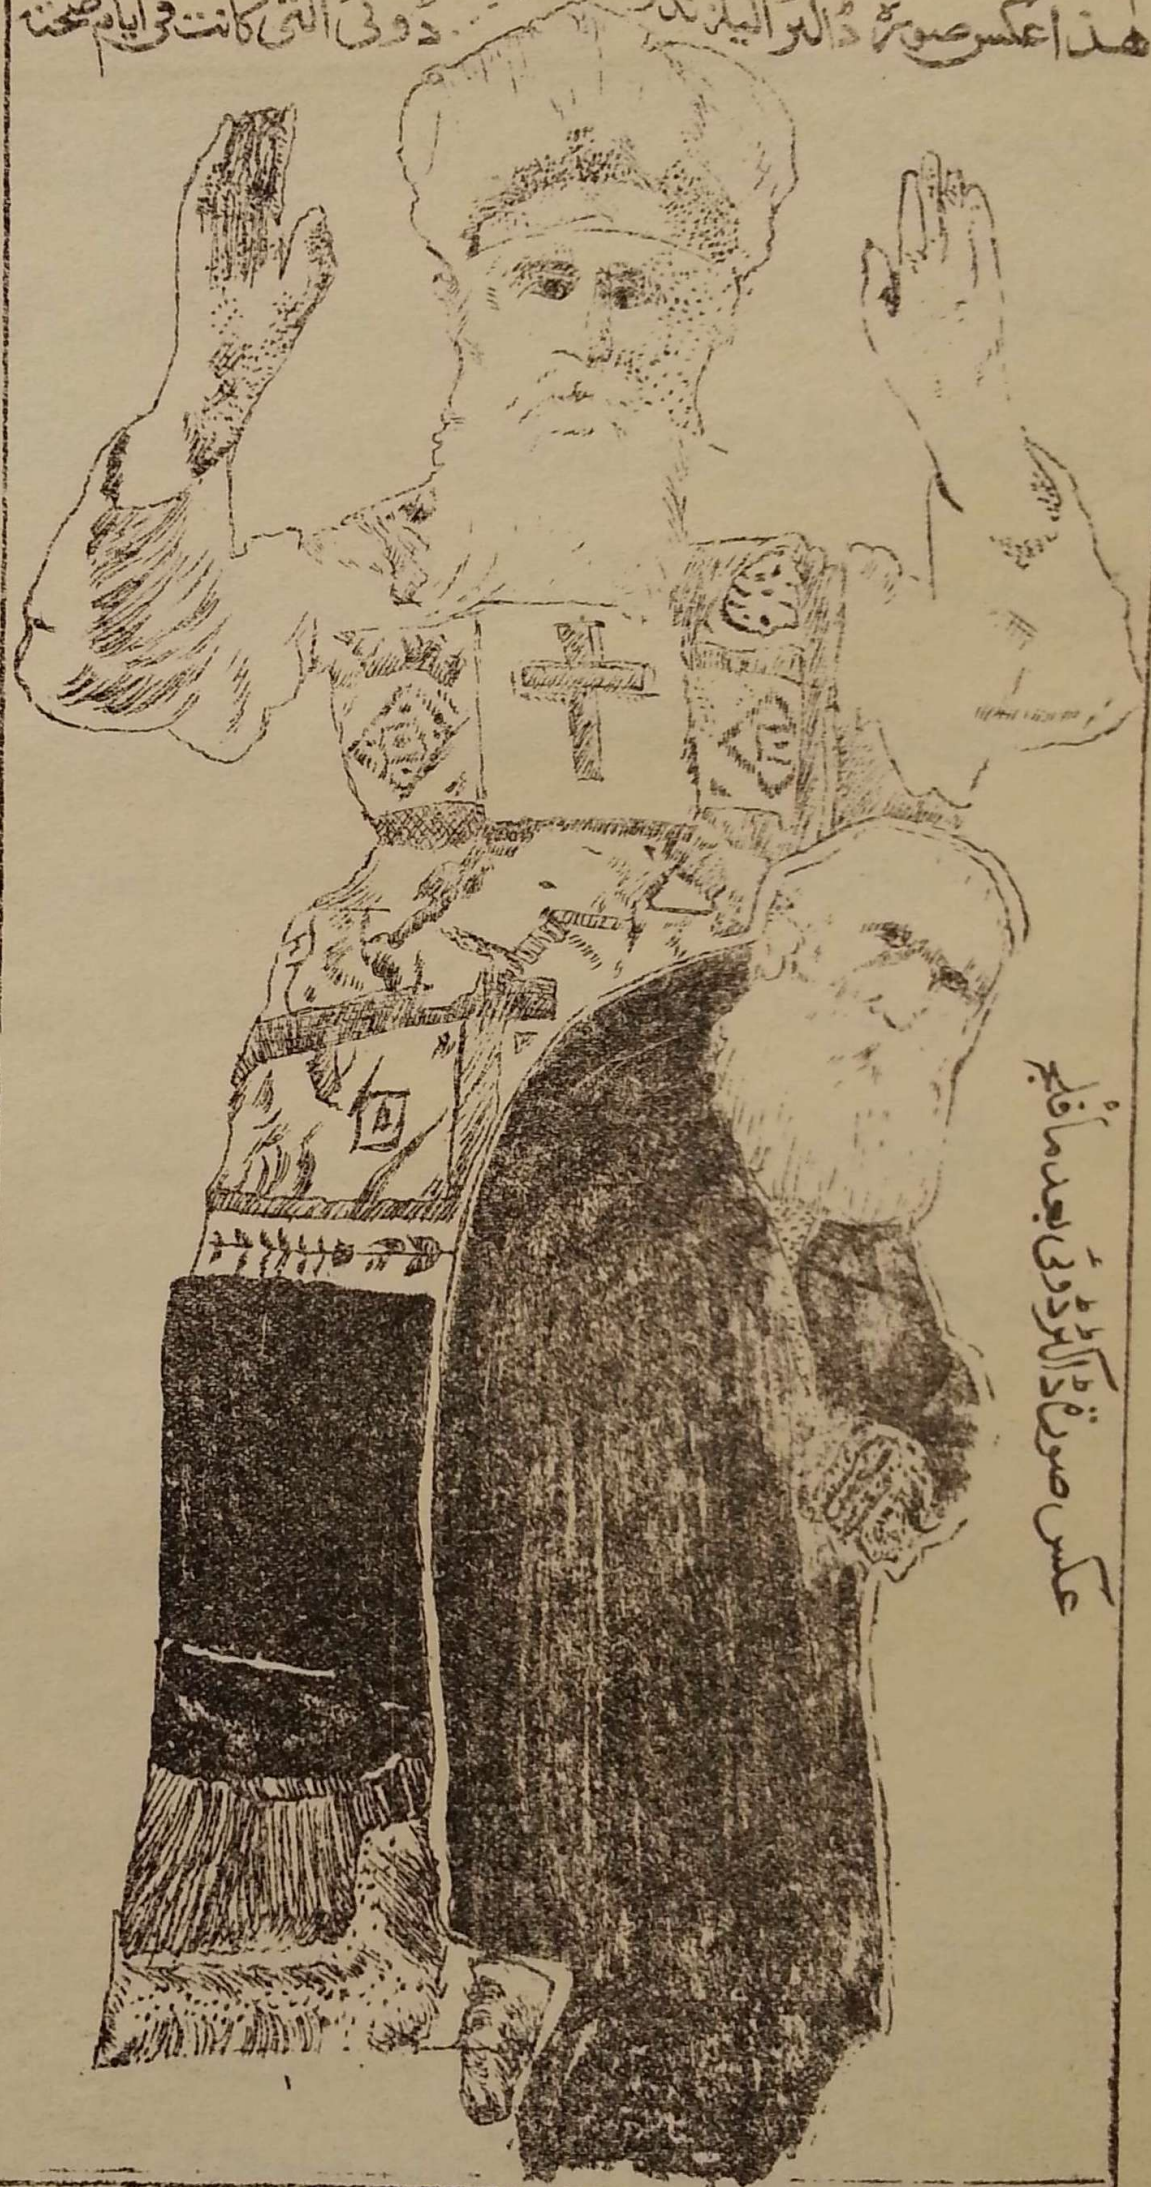 هٰذا عکس صورة ڈاکٹر ڈوئی التی کانت فی ایام صحته
عکس صورة ڈاکٹر ڈوئی بعد ما فُلِج